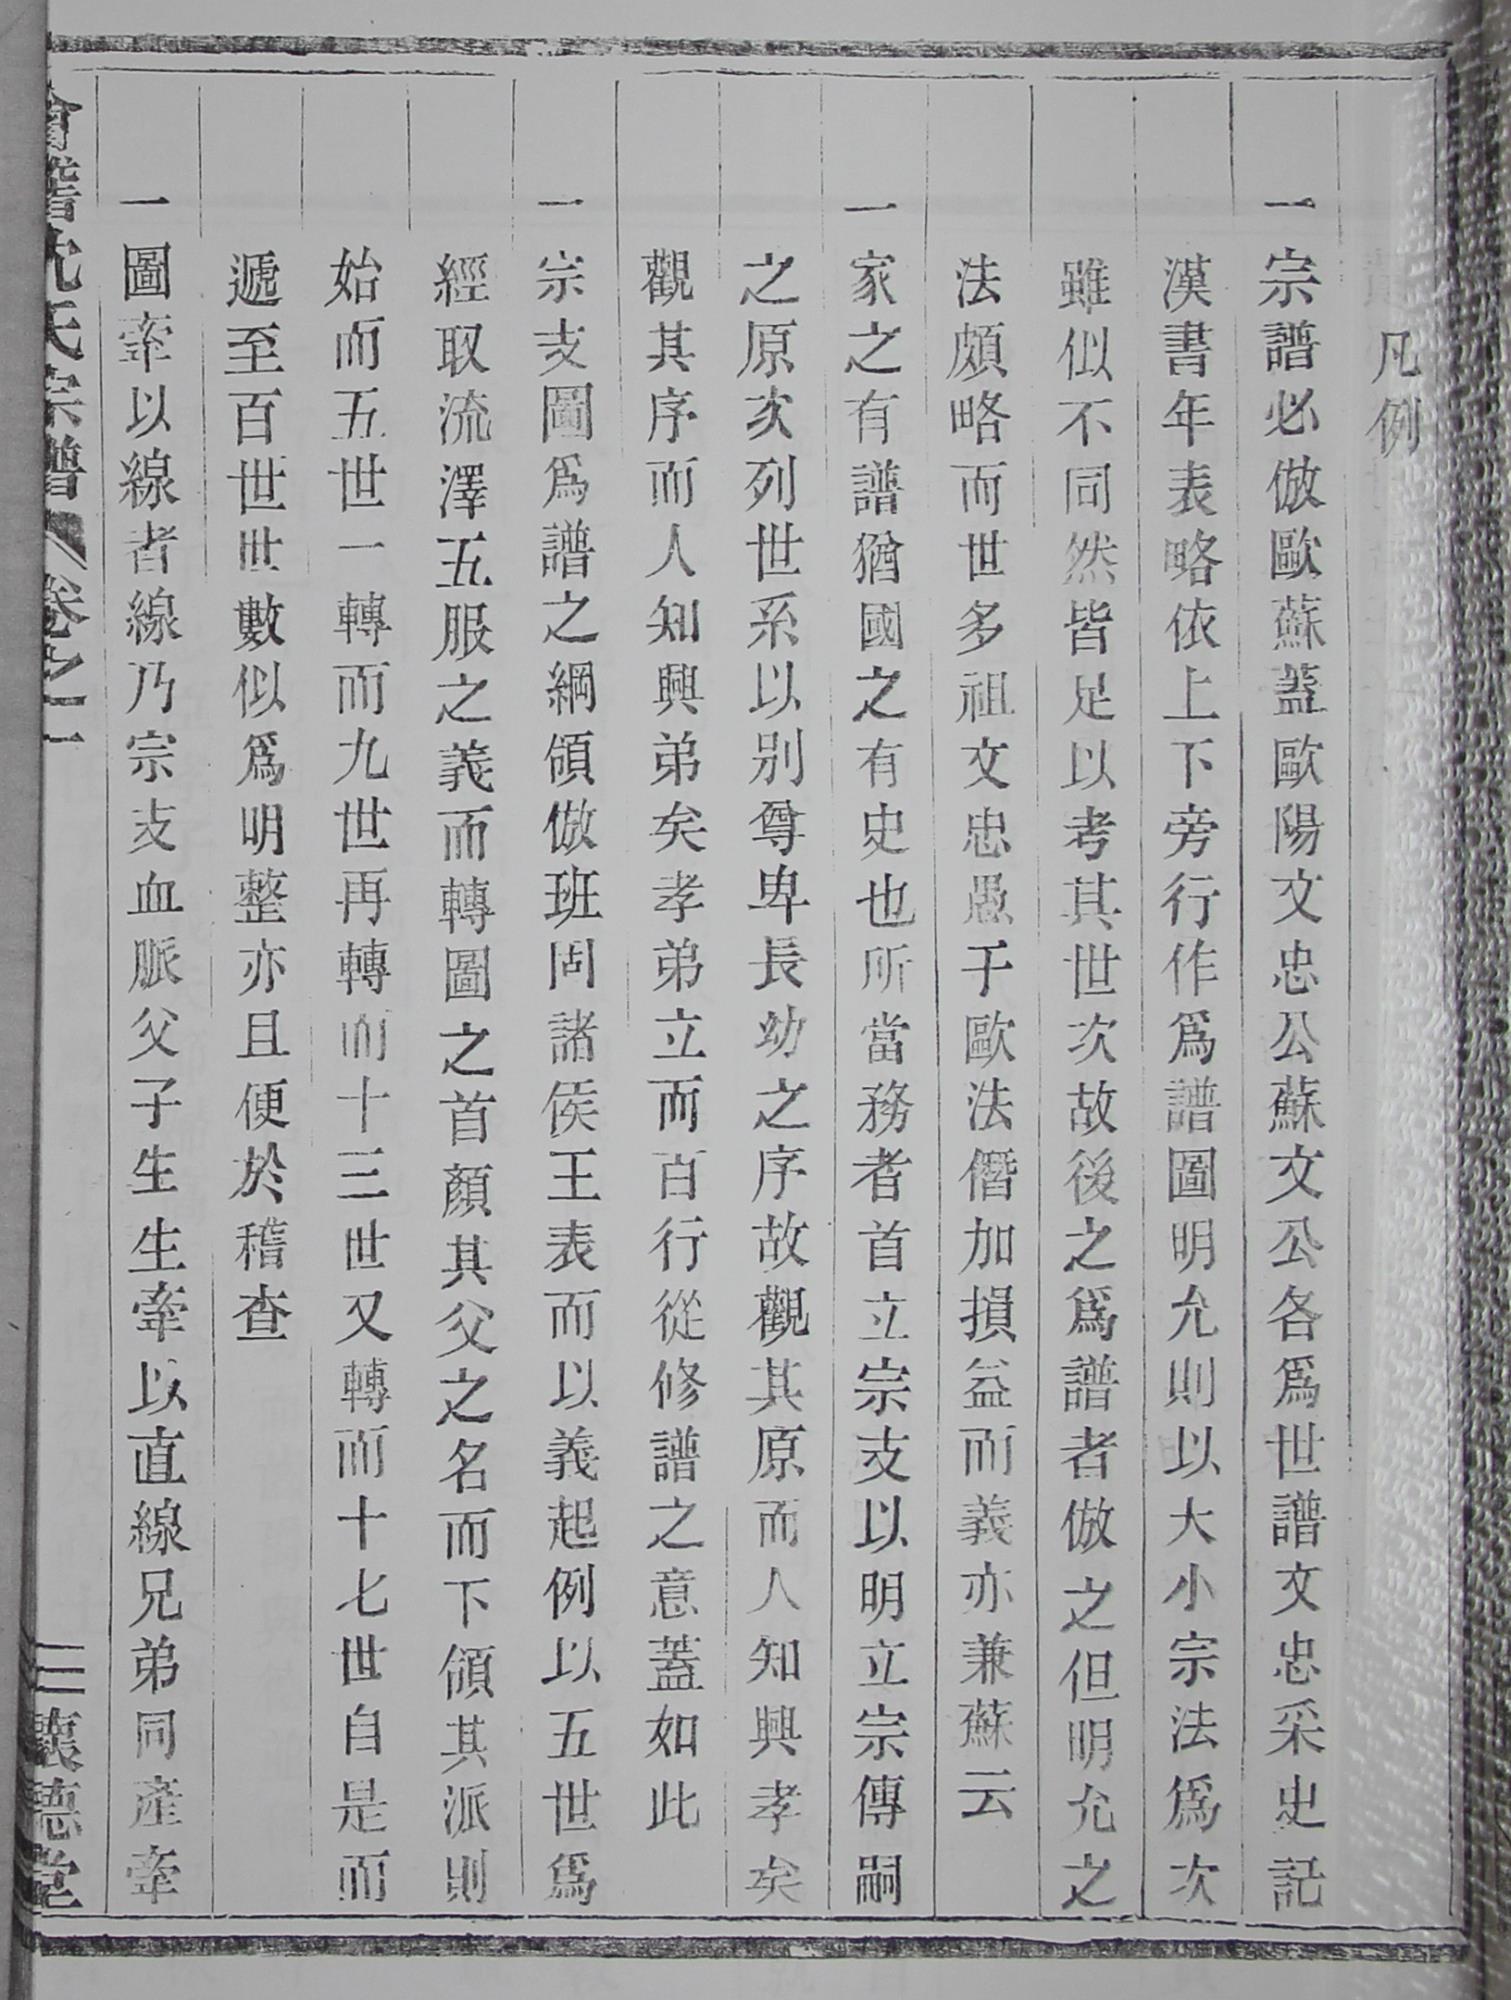 凡例
一宗譜必倣歐蘇蓋歐陽文忠公蘇文公各爲世譜文忠采史記
漢書年表略依上下旁行作爲譜圖明允則以大小宗法爲次
雖似不同然皆足以考其世次故後之爲譜者倣之但明允之
法頗略而世多祖文忠愚于歐法僭加損益而義亦兼蘇云
一家之有譜猶國之有史也所當務者首立宗支以明立宗傳嗣
之原次列世系以別尊卑長幼之序故觀其原而人知興孝矣
觀其序而人知興弟矣孝弟立而百行從修譜之意蓋如此
一宗支圖爲譜之綱領倣班固諸侯王表而以義起例以五世爲
經取流澤五服之義而轉圖之首顏其父之名而下領其派則
始而五世一轉而九世再轉而十三世又轉而十七世自是而
遞至百世世數似爲明整亦且便於稽查
一圖牽以線者線乃宗支血脈父子生生牽以直線兄弟同產牽
會稽沈氏宗譜 卷之一 三 懷德堂